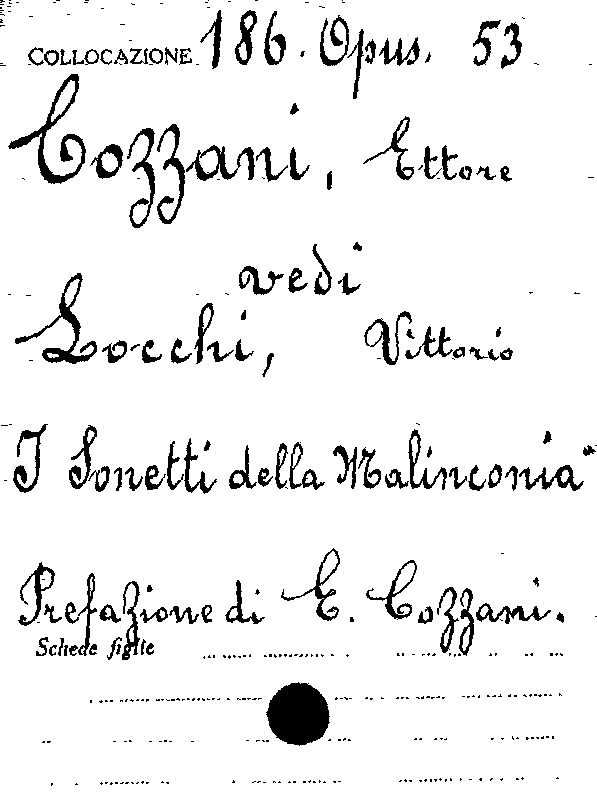 COLLOCAZIONE 186. Opus. 53
Cozzani, Ettore
vedi
Locchi, Vittorio
I Sonetti della Malinconia"
Prefazione di E. Cozzani.
Schede figlie